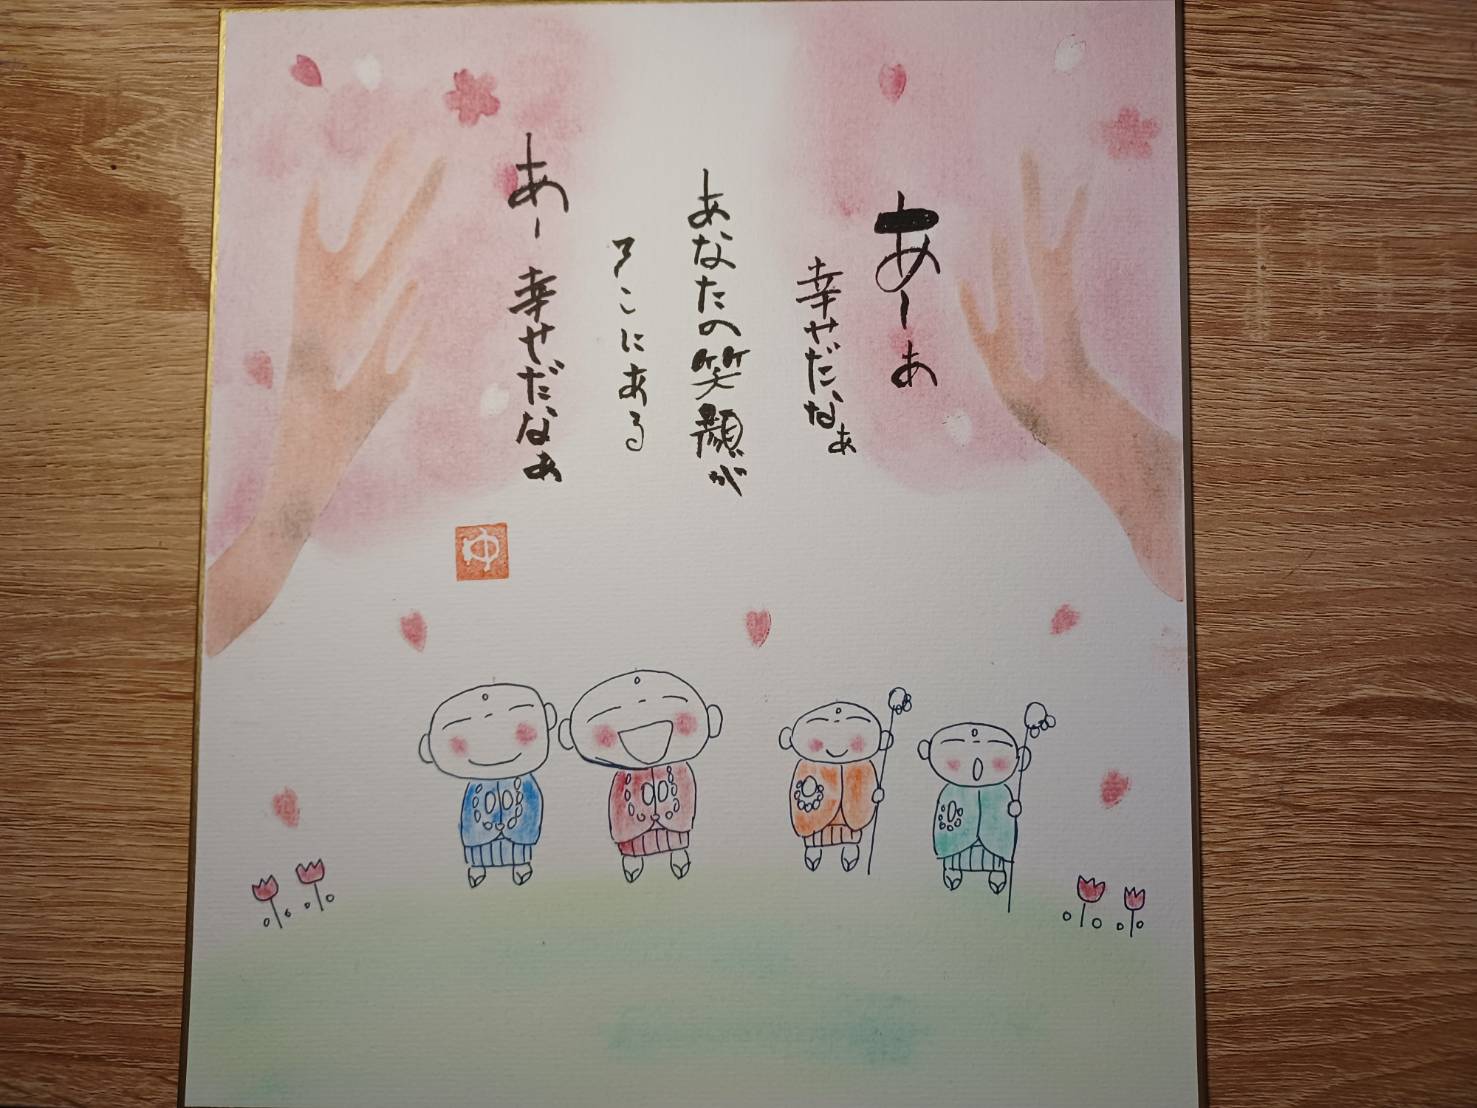 あーぁ
幸せだなぁ
あなたの笑顔が
そこにある
あー幸せだなぁ
ゆ